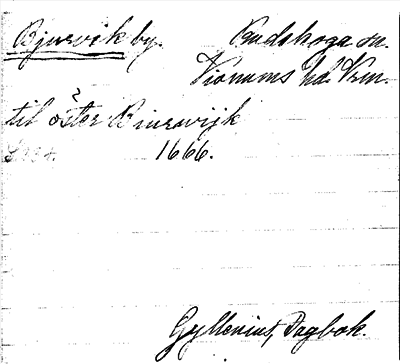 Bjurvik by. Rudskoga sn.
Visnums hd. Vrm.
til öster Biurwijk
1666.
Gyllenius, Dagbok.